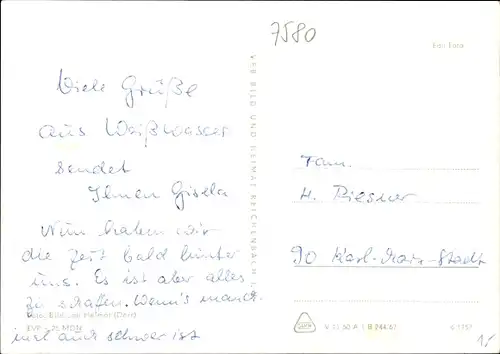 7580
Viele Grüße
aus Weißwasser
sendet
Ihnen Gisela
Nun haben wir
die Zeit bald hinter
uns. Es ist aber alles
zu schaffen. Wenn's manch-
mal auch schwer ist
VEB BILD UND HEIMAT REICHENBACH
Echt Foto
Fam.
H. Piesner
90 Karl-Marx-Stadt
V 11 50 A 1 B 244/67